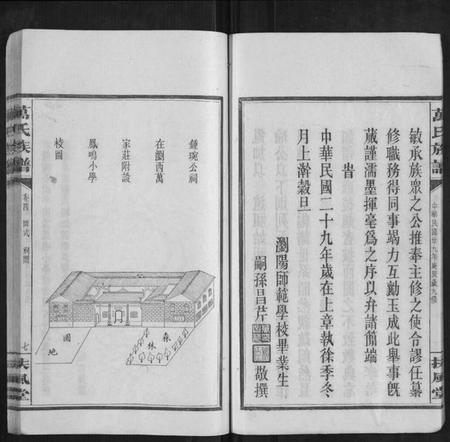 萬氏族譜
中華民國廿九年庚辰歲九修
扶風堂
敏承族衆之公推奉主修之使令謬任纂
修職務得同事竭力互勷玉成此舉事旣
蕆謹濡墨揮毫爲之序以弁諸簡端
旹
中華民國二十九年歲在上章執徐季冬
月上澣穀旦
瀏陽師範學校畢業生
嗣孫昌芹
敬撰
鍾琬公祠
在瀏西萬
家莊附設
鳳鳴小學
校圖
森林
園地
萬氏族譜
卷四
圖式
祠圖
七
扶風堂